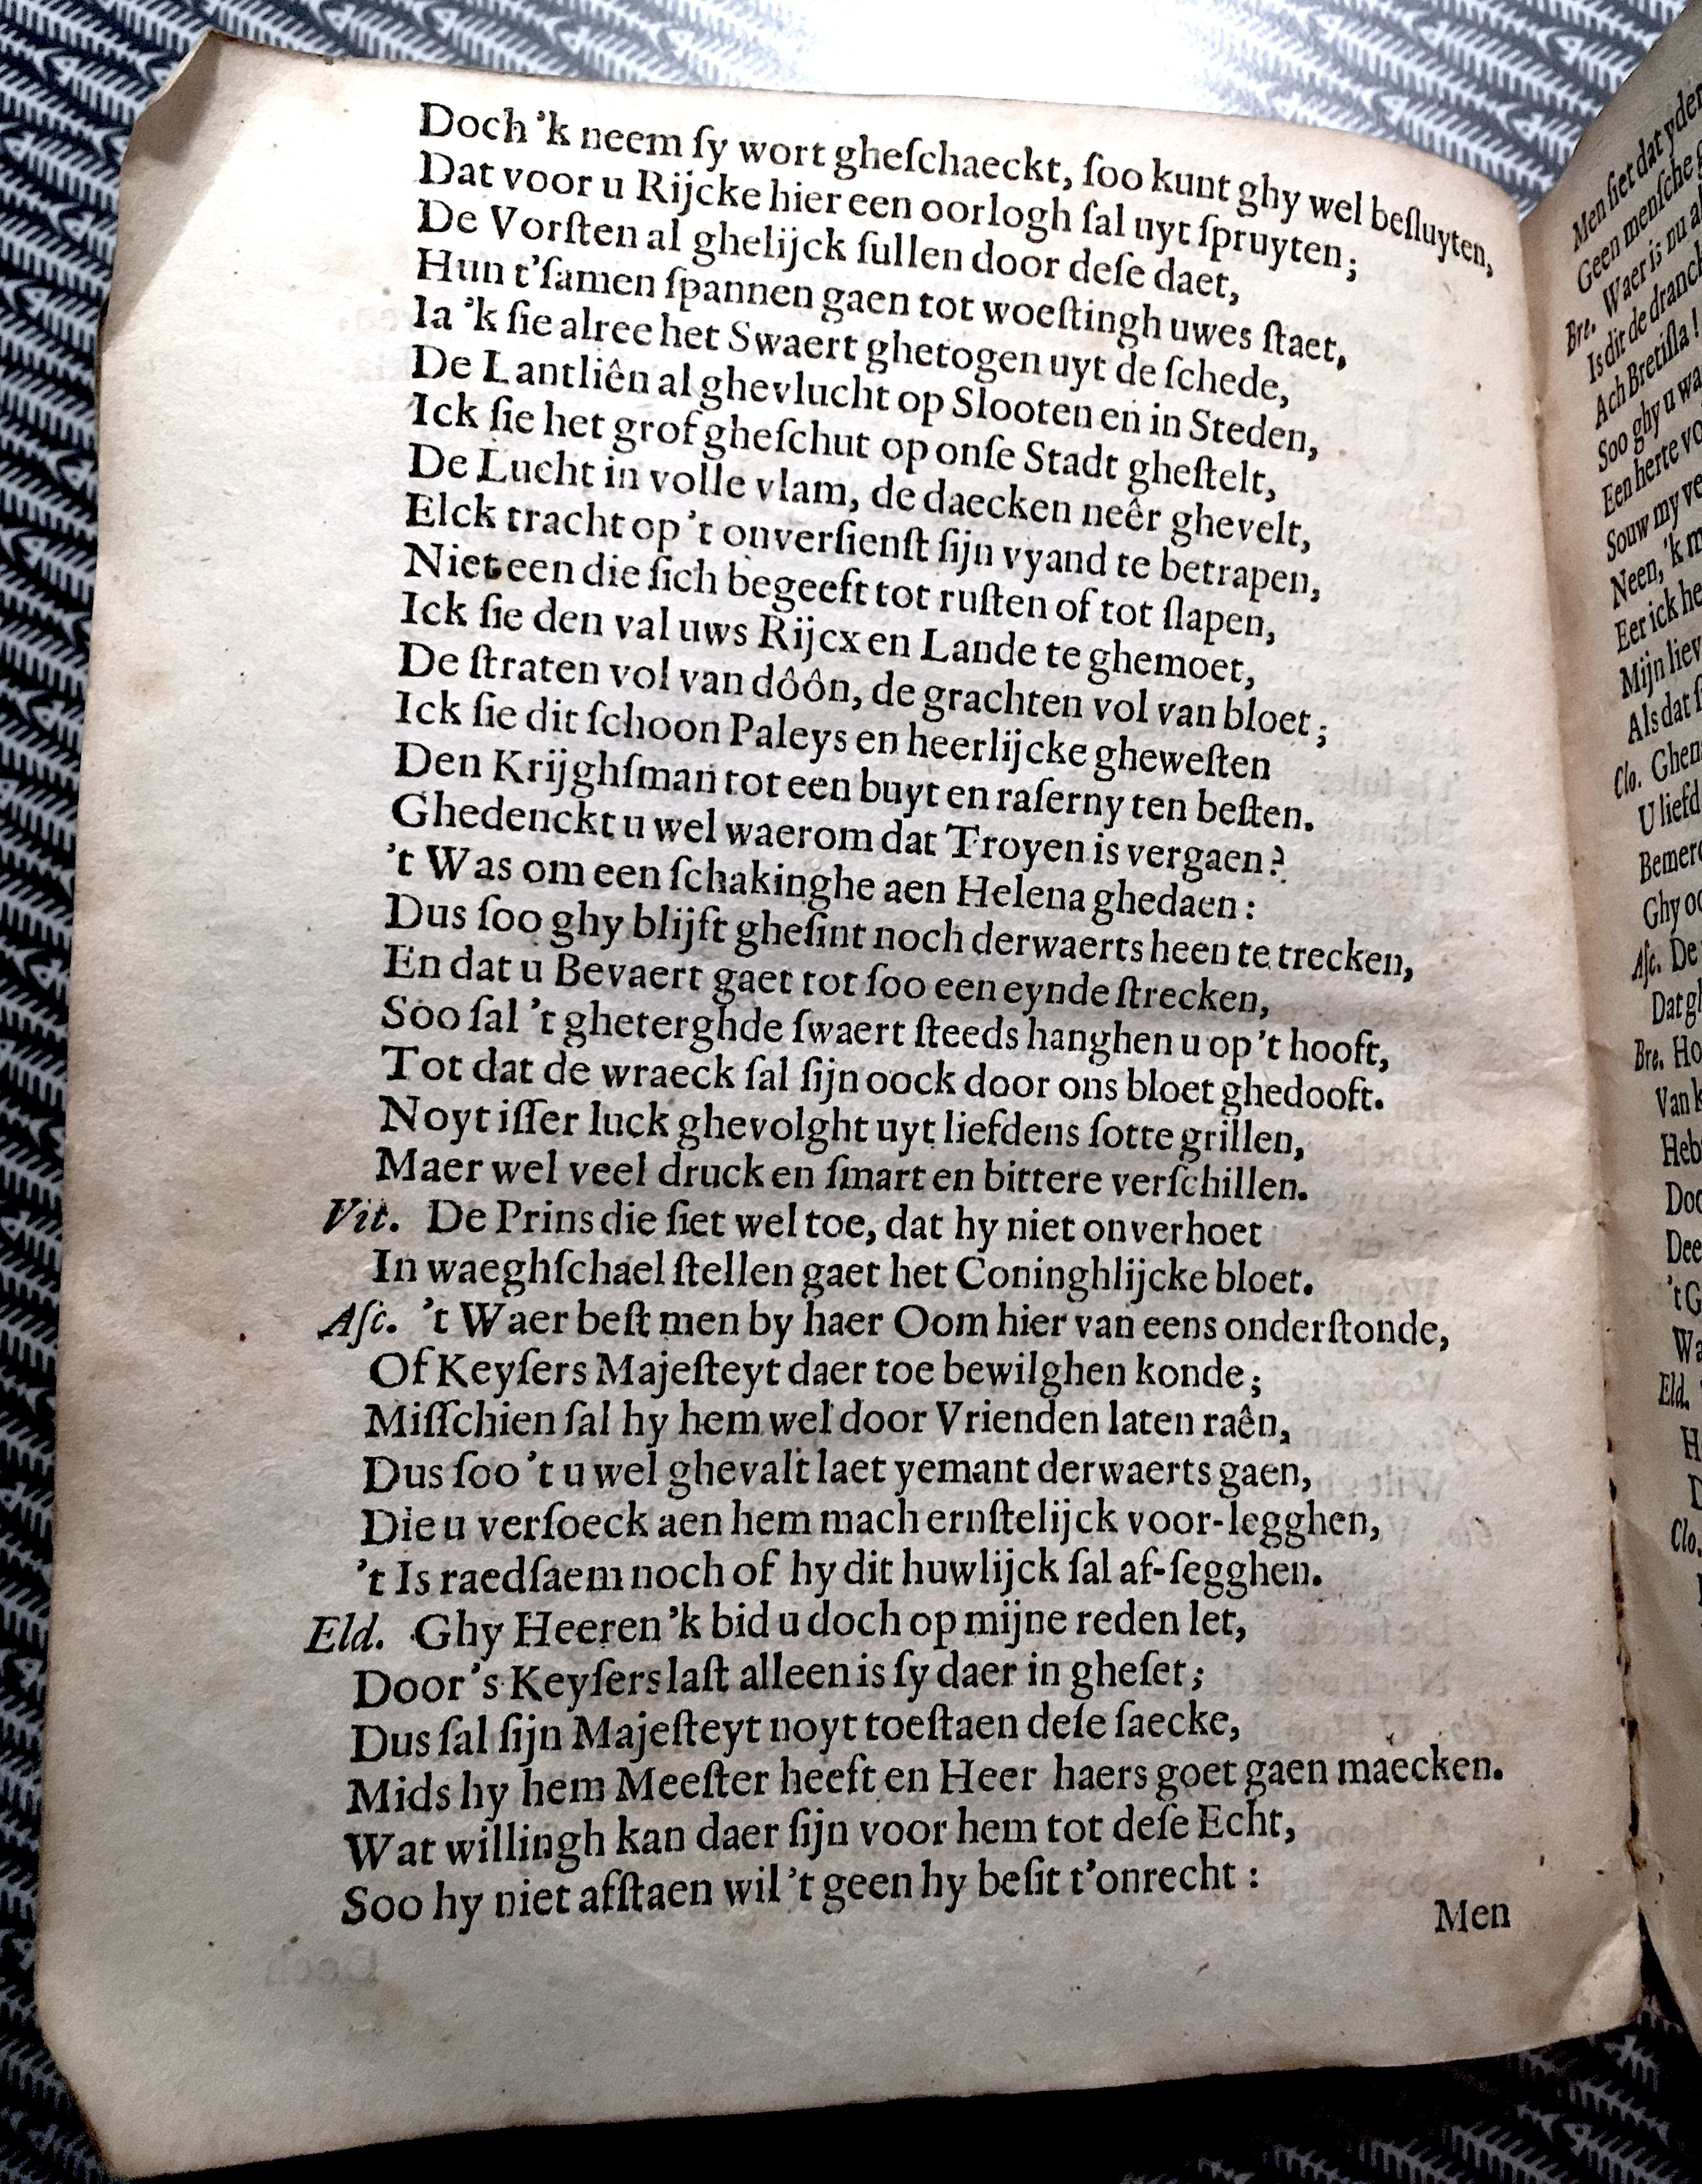 Doch ’k neem ſy wort gheſchaeckt, ſoo kunt ghy wel beſluyten,
Dat voor u Rijcke hier een oorlogh ſal uyt ſpruyten;
De Vorſten al ghelijck ſullen door deſe daet,
Hun t’ſamen ſpannen gaen tot woeſtingh uwes ſtaet,
Ia ’k ſie alree het Swaert ghetogen uyt de ſchede,
De Lantliên al ghevlucht op Slooten en in Steden,
Ick ſie het grof gheſchut op onſe Stadt gheſtelt,
De Lucht in volle vlam, de daecken neêr ghevelt,
Elck tracht op ’t onverſienſt ſijn vyand te betrapen,
Niet een die ſich begeeft tot ruſten of tot ſlapen,
Ick ſie den val uws Rijcx en Lande te ghemoet,
De ſtraten vol van dôôn, de grachten vol van bloet;
Ick ſie dit ſchoon Paleys en heerlijcke gheweſten
Den Krijghſman tot een buyt en raſerny ten beſten.
Ghedenckt u wel waerom dat Troyen is vergaen?
’t Was om een ſchakinghe aen Helena ghedaen:
Dus ſoo ghy blijft gheſint noch derwaerts heen te trecken,
En dat u Bevaert gaet tot ſoo een eynde ſtrecken,
Soo ſal ’t gheterghde ſwaert ſteeds hanghen u op ’t hooft,
Tot dat de wraeck ſal ſijn oock door ons bloet ghedooft.
Noyt iſſer luck ghevolght uyt liefdens ſotte grillen,
Maer wel veel druck en ſmart en bittere verſchillen.
Vit. De Prins die ſiet wel toe, dat hy niet onverhoet
In waeghſchael ſtellen gaet het Coninghlijcke bloet.
Aſc. ’t Waer beſt men by haer Oom hier van eens onderſtonde,
Of Keyſers Majeſteyt daer toe bewilghen konde;
Miſſchien ſal hy hem wel door Vrienden laten raên,
Dus ſoo ’t u wel ghevalt laet yemant derwaerts gaen,
Die u verſoeck aen hem mach ernſtelijck voor-legghen,
’t Is raedſaem noch of hy dit huwlijck ſal af-ſegghen.
Eld. Ghy Heeren ’k bid u doch op mijne reden let,
Door ’s Keyſers laſt alleen is ſy daer in gheſet;
Dus ſal ſijn Majeſteyt noyt toeſtaen deſe ſaecke,
Mids hy hem Meeſter heeft en Heer haers goet gaen maecken.
Wat willingh kan daer ſijn voor hem tot deſe Echt,
Soo hy niet afſtaen wil ’t geen hy beſit t’onrecht:
Men
Men ſiet dat yder
Geen menſche
Bre. Waer is nu
Is dit de dranck
Ach Bretiſla!
Soo ghy u
Een herte
Souw my
Neen, ’k
Eer ick
Mijn
Als dat
Clo.
U
Ghy
Aſc. De
Dat
Bre.
Van
't
Eld.
Clo.